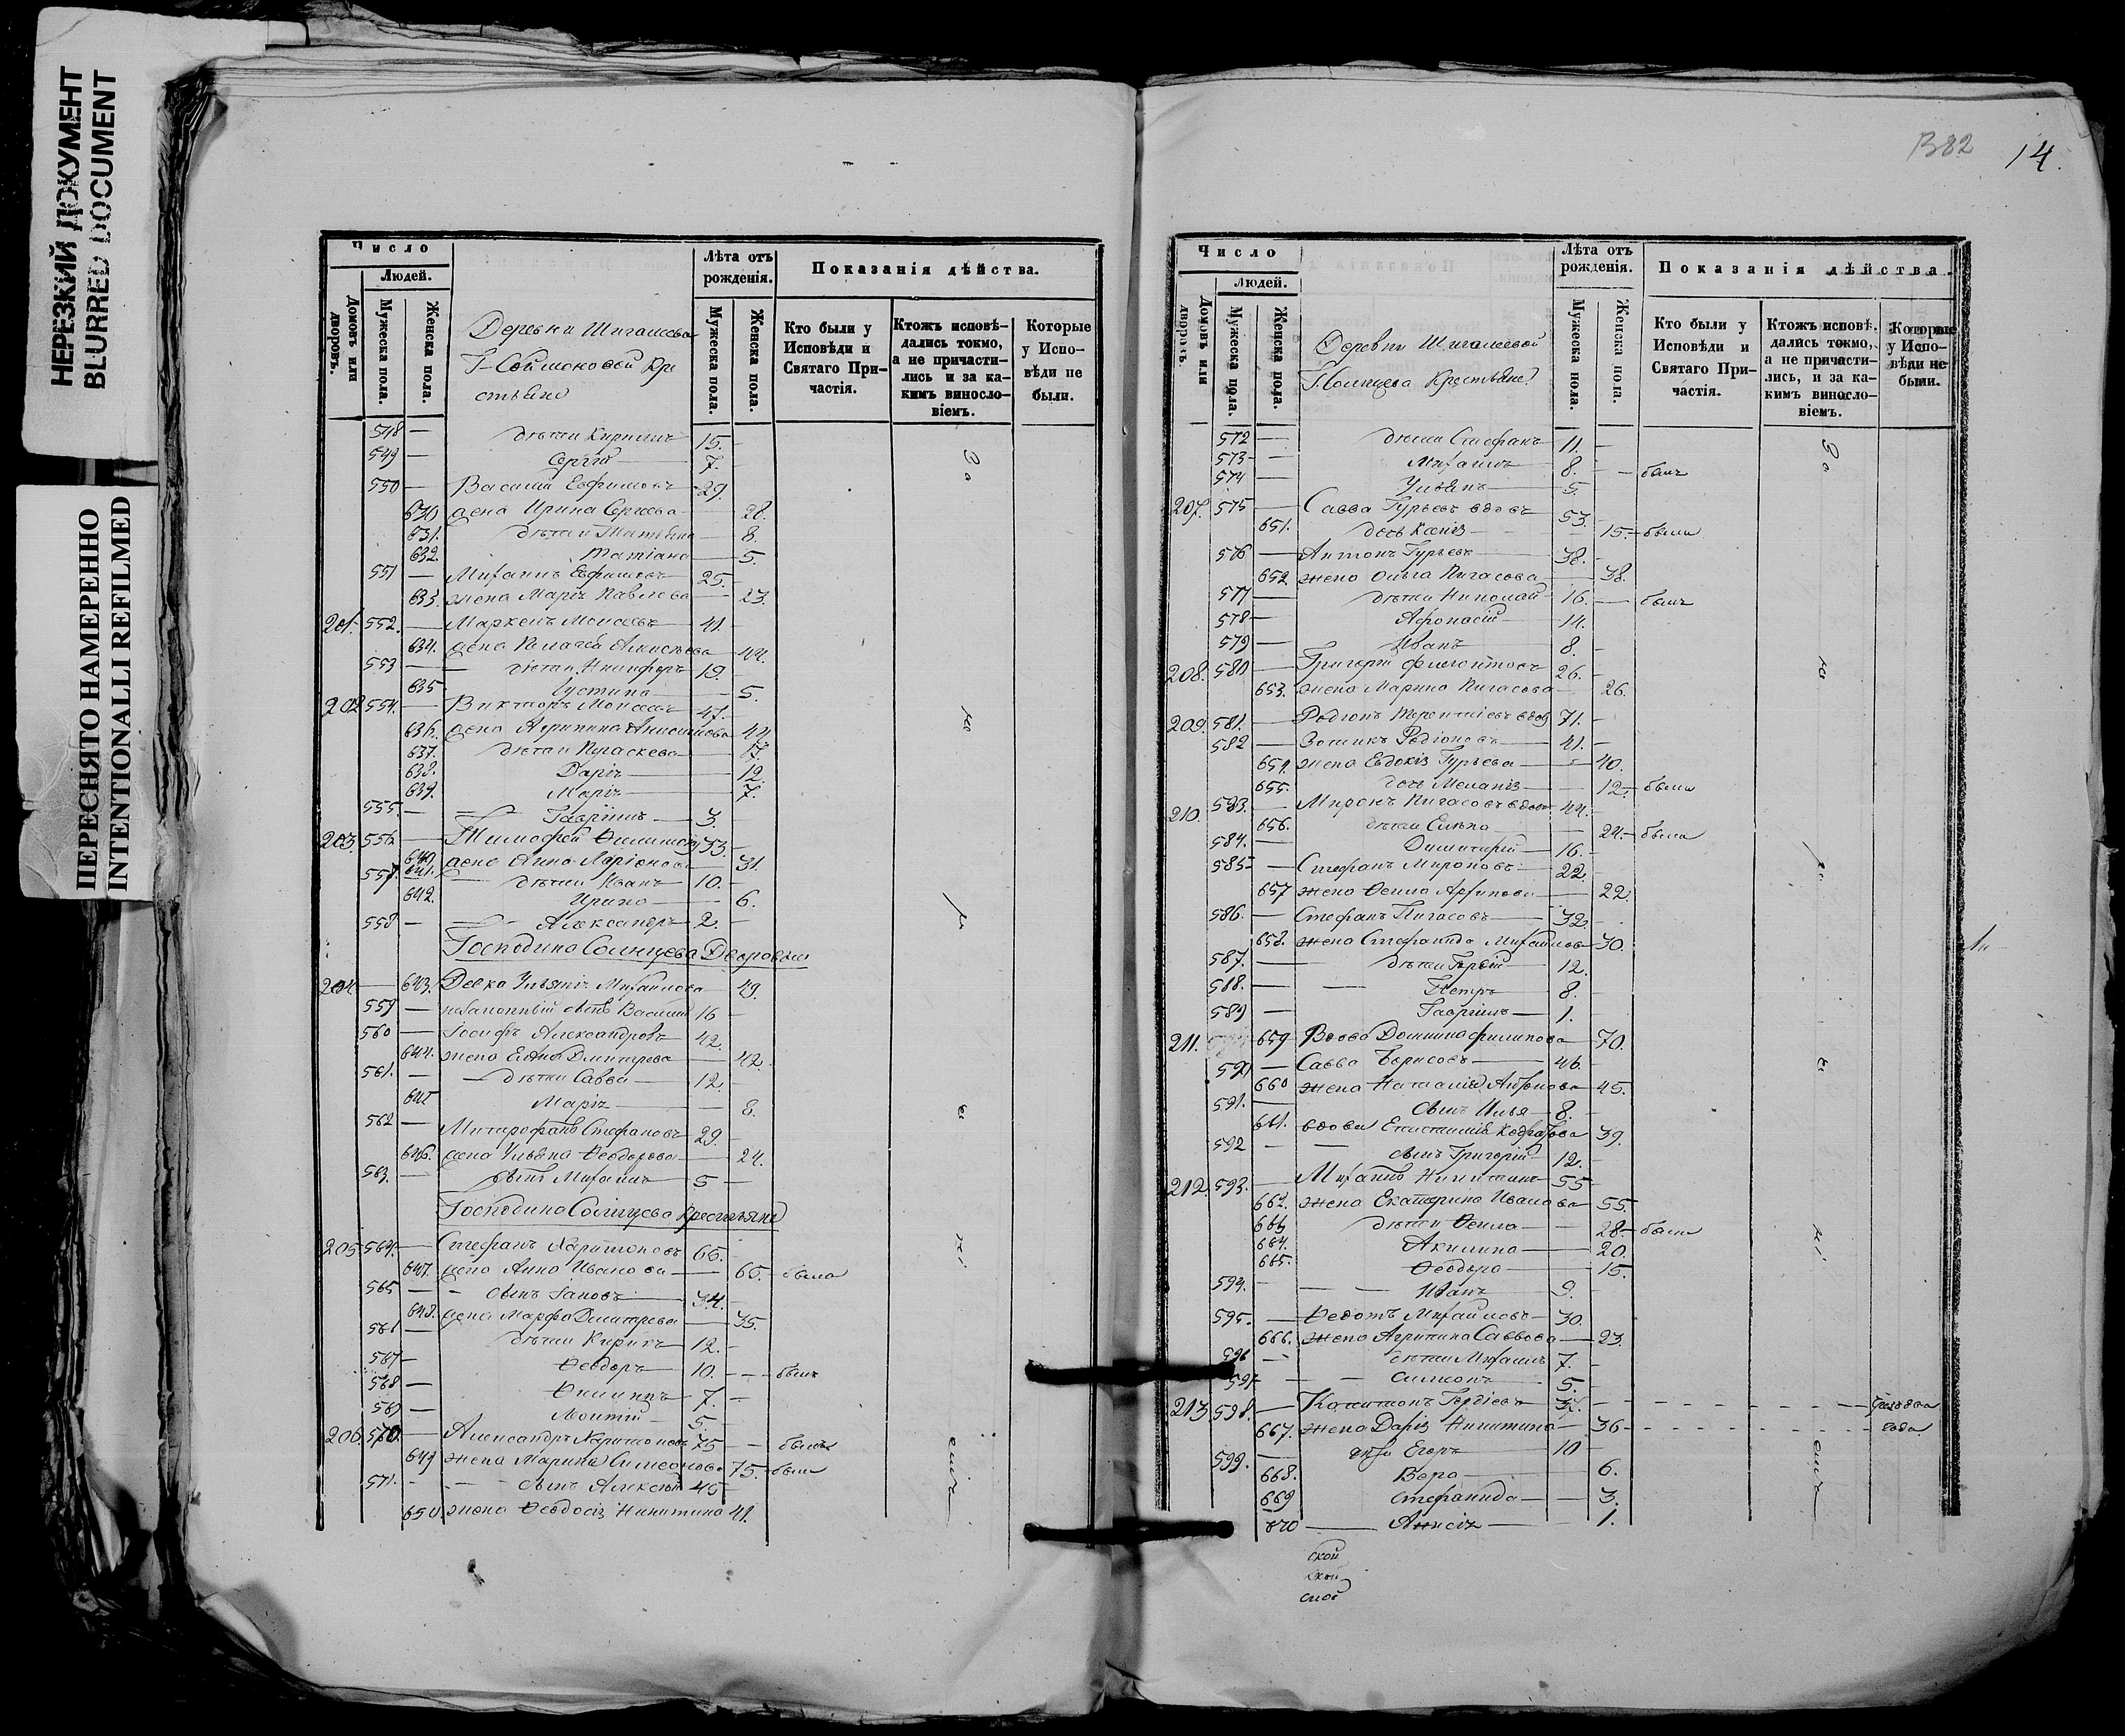 НЕРЕЗКИЙ ДОКУМЕНТ
BLURRED DOCUMENT
ПЕРЕСНЯТО НАМЕРЕННО
INTENTIONALLI REFILMED
Число
Людей.
Домовъ или дворовъ.
Мужеска пола.
Женска пола.
Деревни Шигалеева
Г. Соймоновой Кре
стьяне
Лѣта отъ рожденія.
Мужеска пола.
Женска пола.
Показанія дѣйства.
Кто были у Исповѣди и Святаго Причастія.
Ктожъ исповѣдались токмо, а не причастились и за какимъ винословіемъ.
Которые у Исповѣди не были.
548 — дѣти Кириллъ 15.
549 — Сергій 7.
550 — Василій Евфимовъ 29.
630 жена Ирина Сергеева 28.
631. дѣти Татьяна 8.
632. Матіана 5.
551 — Михаилъ Евфимовъ 25.
633. жена Марія Павлова 23.
201. 552. — Маркелъ Моисеевъ 41.
634. жена Алексѣева 44.
553 — дѣти Никифоръ 19.
635 Іустина 5.
202 554. — Викторъ Моисеевъ 47.
636. жена Агрипина 44
637. дѣти Параскева 17.
638. Дарія 12.
639. Марія 7.
555. — Гавріилъ 3.
203. 556 — Тимофей 33.
640. жена Анна Ларіонова 31.
641.
557. дѣти Иванъ 10.
642. Ирина 6.
558 — Александръ 2.
Господина Солнцева Дворовыи
204. — 643. Девка Михайлова 49.
559 — незаконный сынъ Василій 16
560 — Іосифъ Александровъ 42.
644. жена Елена Дмитрева 42.
561. — дѣти Савва 12
645 Марія 8.
562 — Митрофанъ Стефановъ 29.
646. жена Ульяна Ѳеодорова 24.
563. — сынъ Михаилъ 5
Господина Солнцева крестьяне
205 564. — Стефанъ Харитоновъ 66.
647. жена Анна Иванова 65. — была
565 — сынъ Іаковъ 34.
648. жена Марфа Дмитрева 35.
566 — дѣти Кирикъ 12.
567 — Ѳеодоръ 10. — былъ
568 — Филиппъ 7.
569 — 5
206. 570. — Александръ Харитоновъ 75 — былъ
649 жена Марина Симеонова 75. была
571. — сынъ Алексѣй 45
650. жена Ѳеодосія Никитина 41.
В82 14.
Число
Людей.
Домовъ или дворовъ.
Мужеска пола.
Женска пола.
Деревни Шигалеевой
Г. Солнцева Крестьяне
Лѣта отъ рожденія.
Мужеска пола.
Женска пола.
Показанія дѣйства.
Кто были у Исповѣди и Святаго Причастія.
Ктожъ исповѣдались токмо, а не причастились, и за какимъ винословіемъ.
Которые у Исповѣди не были.
572 — дѣти Стефанъ 11.
573 — Михаилъ 8. — былъ
574 — Ульянъ 5.
207. 575 — Савва Гурьевъ вдовъ 53.
651. дочь Ксенія 15. — была
576 — Антонъ Гурьевъ 38.
652. жена Ольга Пигасова 38.
577 — дѣти Николай 16. — былъ
578 — Афонасій 14.
579 — Иванъ 8.
208. 580 — Григорій 26.
653. жена Марина Пигасова 26.
209. 581. — Родіонъ Терентіевъ вдов 71.
582 — Родіоновъ 41.
654. жена Евдокія Гурьева 40.
655. дочь Меланія 12. — была
210. 583. — Миронъ Пигасовъ вдовъ 44.
656. дѣти Елѣна 24. — была
584. — Димитрій 16.
585 — Стефанъ Мироновъ 22
657 жена 22.
586. — Стефанъ Пигасовъ 32.
658. жена Стефанида Михайлова 30.
587. — дѣти Гордій 12.
588. — Петръ 8.
589 — Гавріилъ 1.
211. 659 Вдова Домнина Филипова 70.
590 — Савва Борисовъ 46.
660 жена Наталія 45.
591. — сынъ Илья 8.
661. вдова 39.
592 — сынъ Григорій 12.
212. 593. — Михаилъ Никитинъ 55
662. жена Екатерина Иванова 55.
663 дѣти 28 — была
664. Акилина 20.
665. Ѳеодора 15.
594. — Иванъ 9.
595. — Ѳедотъ Михайловъ 30.
666. жена Агрипина Саввова 23.
596 — дѣти Михаилъ 7.
597 — Симеонъ 5.
213 598. — Капитонъ Гордіевъ
667. жена Дарія Никитина 36
599. — Егоръ 10
668. Вера 6.
669 Стефанида 3.
670 — Анисія 1.
ской
ской